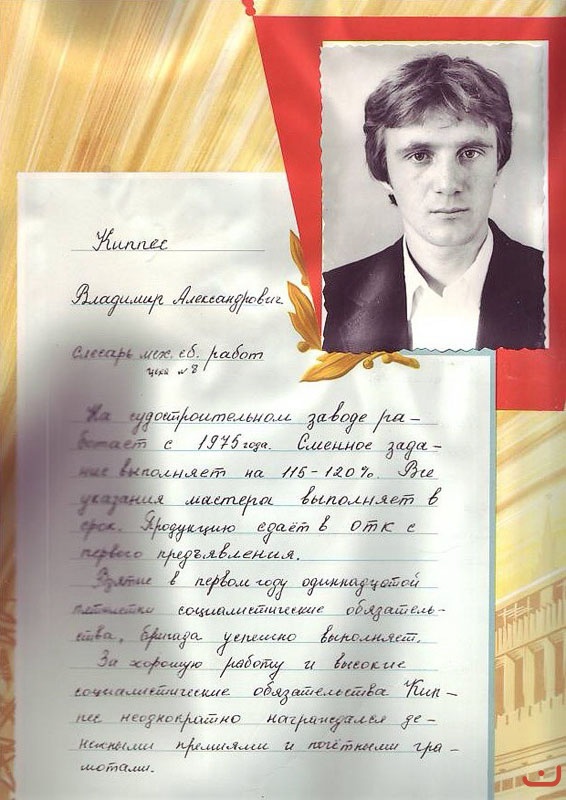 Киппес
Владимир Александрович
Слесарь мех. сб. работ
цеха № 8
На судостроительном заводе ра-
ботает с 1975 года. Сменное зада-
ние выполняет на 115-120%. Все
указания мастера выполняет в
срок. Продукцию сдаёт в ОТК с
первого предъявления.
Взятые в первом году одиннадцатой
пятилетки социалистические обязатель-
ства, бригада успешно выполняет.
За хорошую работу и высокие
социалистические обязательства Кип-
пес неоднократно награждался де-
нежными премиями и почётными гра-
мотами.